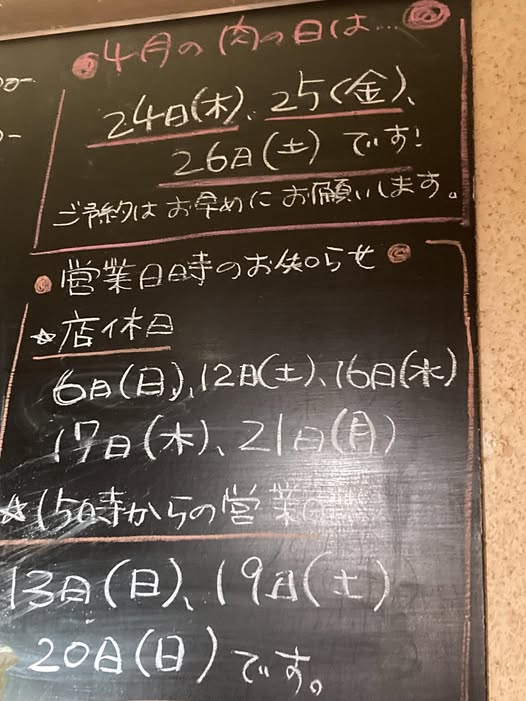 4月の肉の日は…
24日(木)、25(金)、
26日(土)です!
ご予約はお早めにお願いします。
営業日時のお知らせ
☆店休日
6日(日)、12日(土)、16日(水)
17日(木)、21日(月)
☆15時からの営業日
13日(日)、19日(土)
20日(日)です。